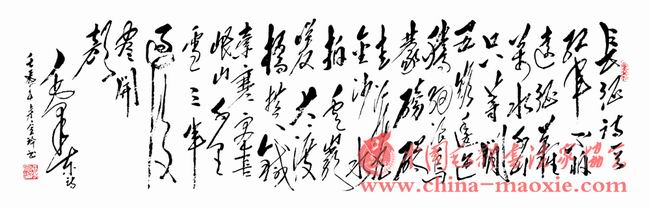 長征诗一首
红军不怕
远征难
万水千山
只等闲
五岭逶迤
腾细浪乌
蒙磅礴
走泥丸
金沙水
拍云崖
暖大渡
桥横铁索
寒更喜
岷山千里
雪三军
过后
尽开
颜
毛泽东诗
www.china-maoxie.com